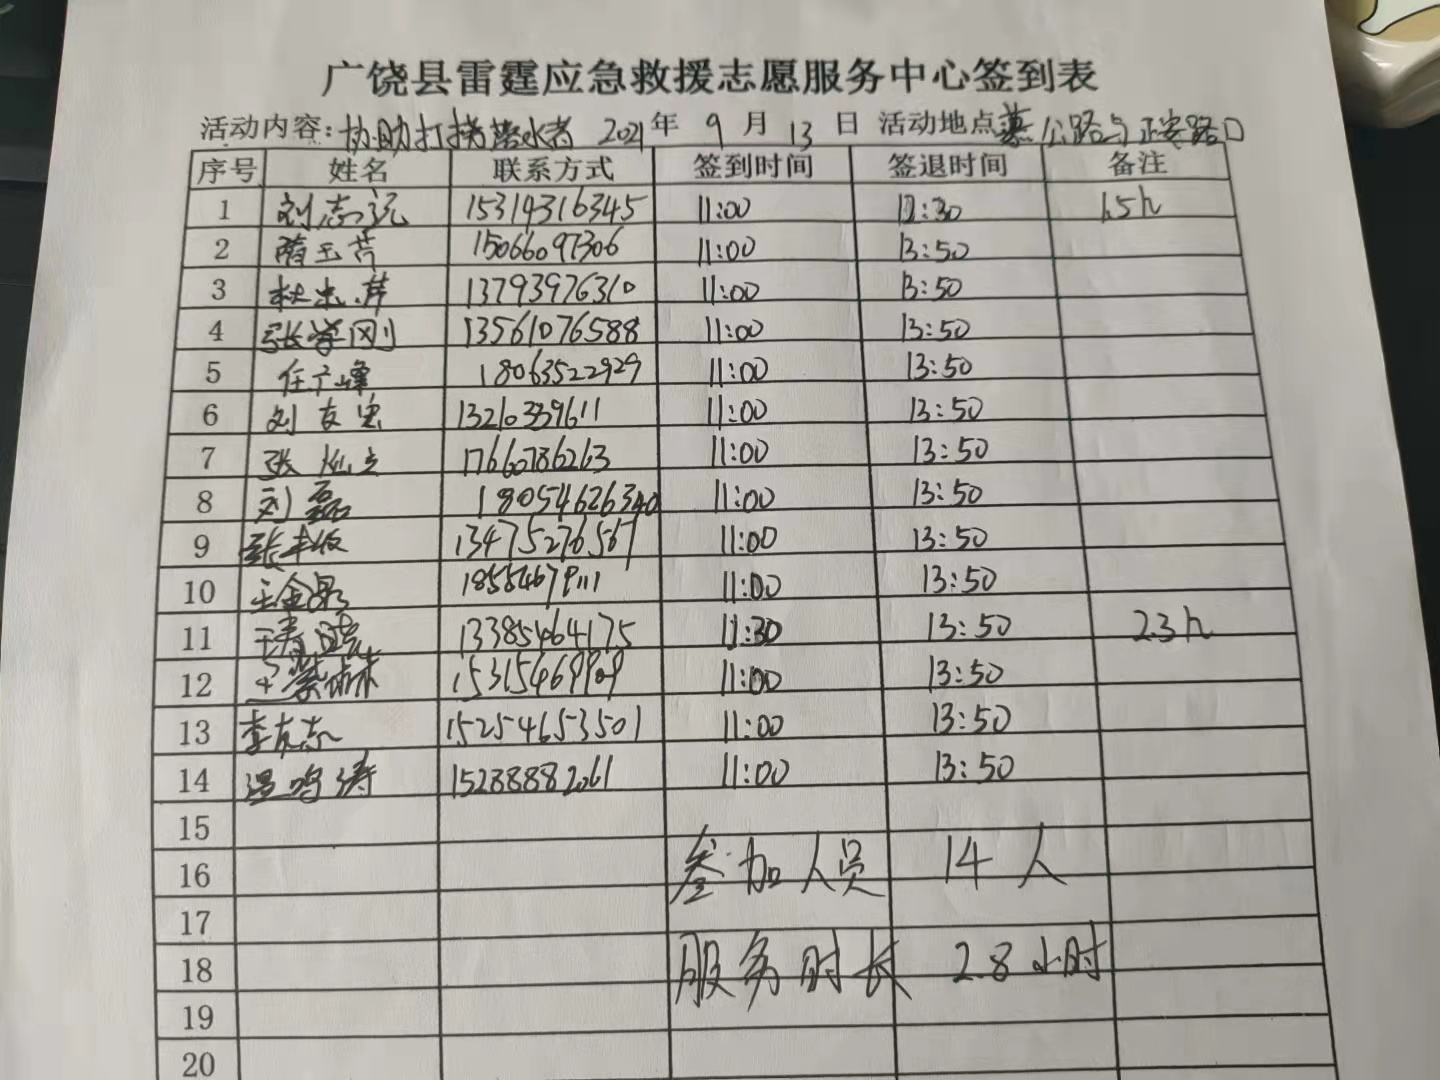 广饶县雷霆应急救援志愿服务中心签到表
活动内容：协助打捞落水者 2021年 9月 13日 活动地点 公路与正安路口
序号 姓名 联系方式 签到时间 签退时间 备注
1 刘志远 15314316345 11:00 12:30 1.5h
2 隋玉芹 15066097306 11:00 13:50
3 杜忠萍 13793976310 11:00 13:50
4 张学刚 13561076588 11:00 13:50
5 任广峰 18063522929 11:00 13:50
6 刘友忠 13210339611 11:00 13:50
7 张灿立 17660786263 11:00 13:50
8 刘磊 18054626340 11:00 13:50
9 张 13475276567 11:00 13:50
10 王金 18554679111 11:00 13:50
11 王 13385464175 11:30 13:50 2.3h
12 11:00 13:50
13 李友志 15254653501 11:00 13:50
14 温鸣涛 15288882061 11:00 13:50
15
16 参加人员 14人
17
18 服务时长 2.8小时
19
20